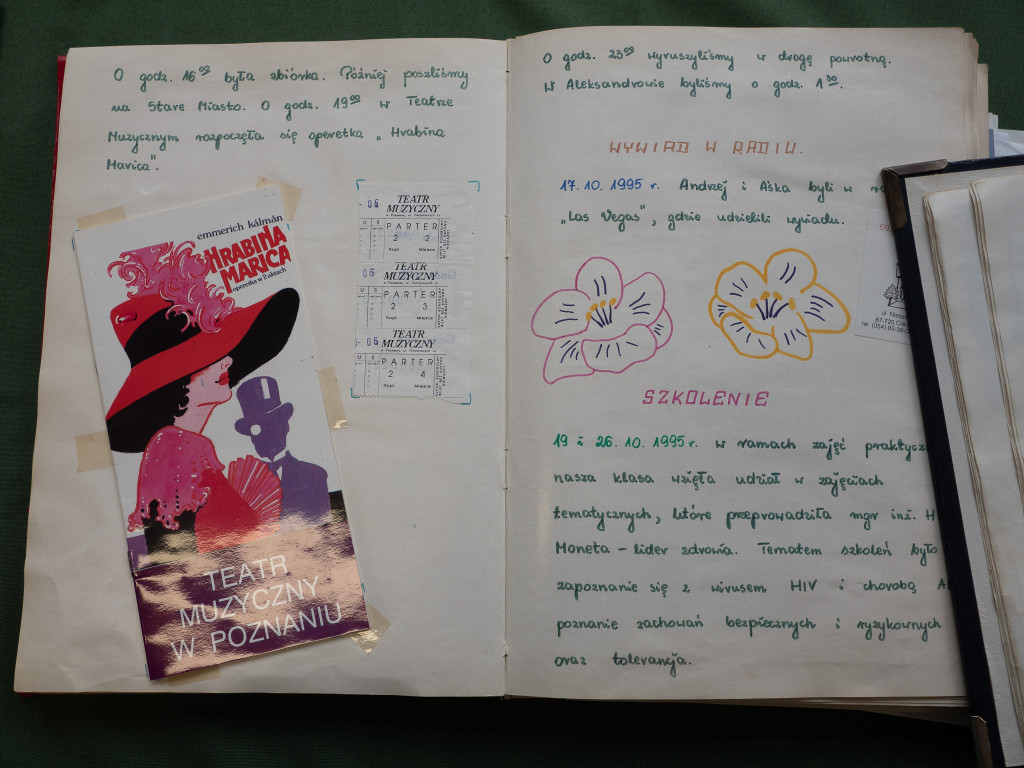 O godz. 16⁰⁰ była zbiórka. Później poszliśmy
na Stare Miasto. O godz. 19⁰⁰ w Teatrze
Muzycznym rozpoczęła się operetka „Hrabina
Marica".
emmerich kálmán
HRABINA
MARICA
operetka w 2 aktach
TEATR
MUZYCZNY
W POZNANIU
TEATR
MUZYCZNY
06
PARTER
2 2
Rząd Miejsce
TEATR
MUZYCZNY
06
PARTER
2 3
Rząd Miejsce
TEATR
MUZYCZNY
06
PARTER
2 4
Rząd Miejsce
O godz. 23⁰⁰ wyruszyliśmy w drogę powrotną.
W Aleksandrowie byliśmy o godz. 1³⁰.
WYWIAD W RADIU.
17.10.1995 r. Andrzej i Aśka byli w
„Las Vegas", gdzie udzielili wywiadu.
SZKOLENIE
19 i 26.10.1995 r. w ramach zajęć
nasza klasa wzięła udział w zajęciach
tematycznych, które przeprowadziła mgr inż. H
Moneta – lider zdrowia. Tematem szkoleń było
zapoznanie się z wirusem HIV i chorobą
poznanie zachowań bezpiecznych i ryzykownych
oraz tolerancja.